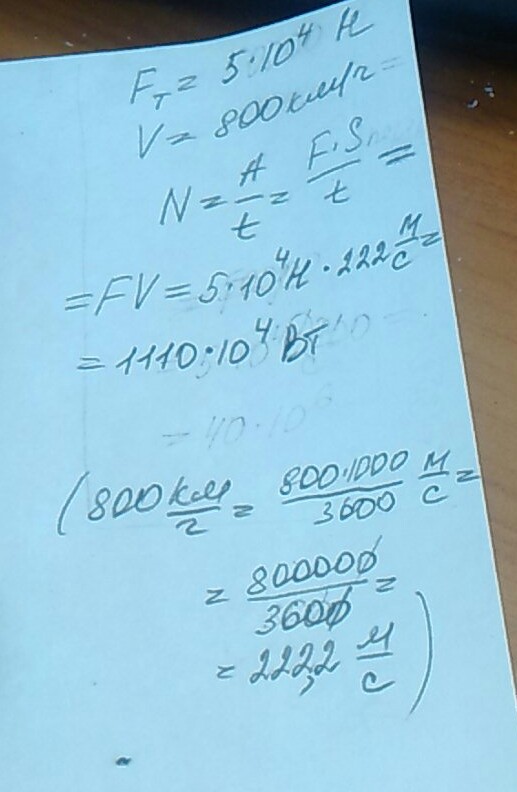 Fт = 5·10⁴ Н
V = 800 км/ч =
N = A/t = F·S/t =
= FV = 5·10⁴Н · 222 м/с =
= 1110·10⁴ Вт
= 40·10⁶
(800 км/ч = 800·1000/3600 м/с =
= 800000/3600 =
= 222,2 м/с)